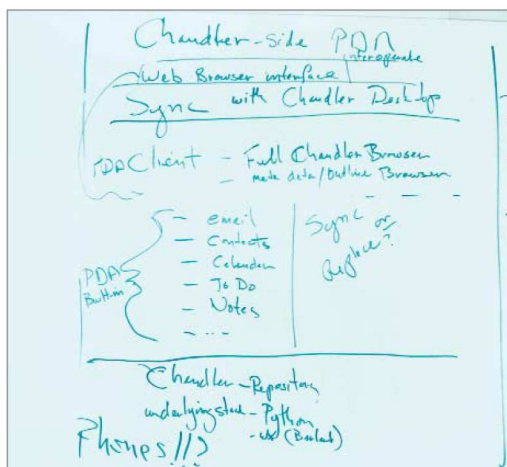 Chandler-side PDA
interoperate
Web Browser interface
Sync with Chandler Desktop
PDA Client - Full Chandler Browser
- meta data/Outline Browser
PDA
Built-in
- email
- Contacts
- Calendar
- To Do
- Notes
- ...
Sync or
Replace?
Chandler - Repository
underlying stack - Python
- wx
Phones!!?